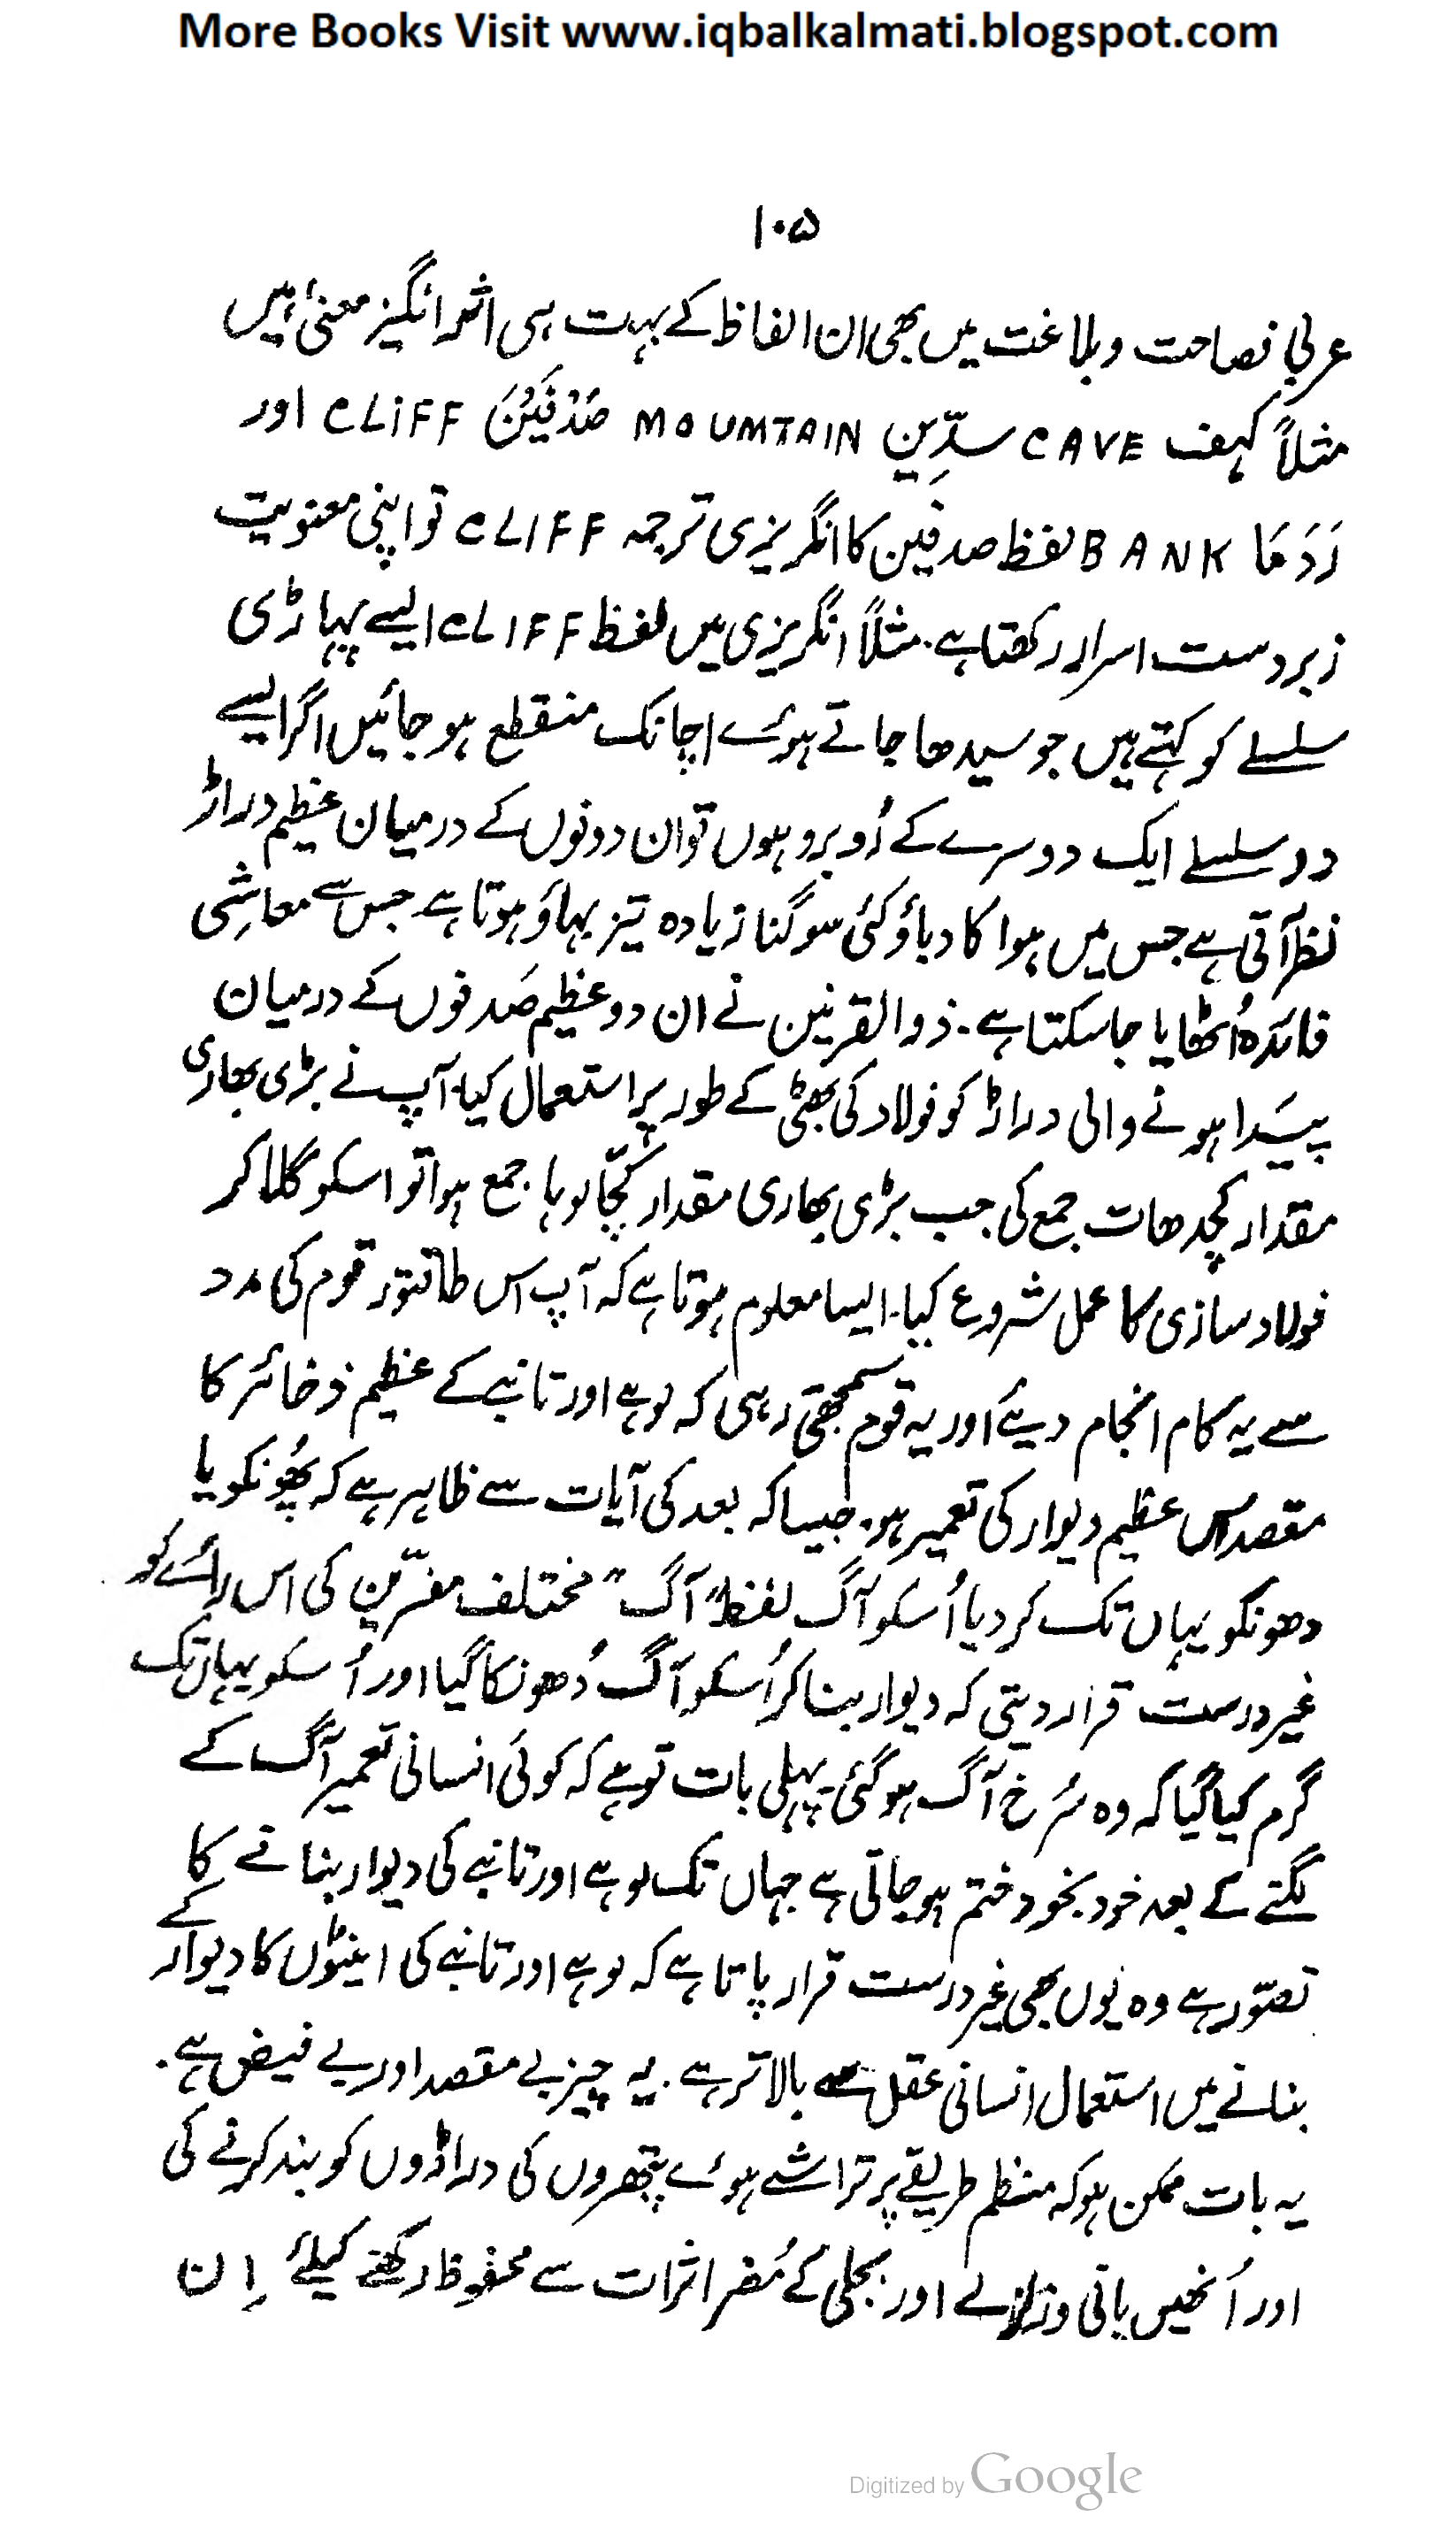 More Books Visit www.iqbalkalmati.blogspot.com
۱۰۵
عربی فصاحت و بلاغت میں بھی ان الفاظ کے بہت ہی اثر انگیز معنیٰ ہیں
مثلاً کہف CAVE سدّین MOUMTAIN صَدْفَیْن CLiFF اور
رَدَمَا BANK لفظ صدفین کا انگریزی ترجمہ CLIFF تو اپنی معنویت
زبردست اسرار رکھتا ہے۔ مثلاً انگریزی میں لفظ CLIFF ایسے پہاڑی
سلسلے کو کہتے ہیں جو سیدھا جاتے ہوئے اچانک منقطع ہو جائیں اگر ایسے
دو سلسلے ایک دوسرے کے رُوبرو ہوں تو ان دونوں کے درمیان عظیم دراڑ
نظر آتی ہے جس میں ہوا کا دباؤ کئی سو گنا زیادہ تیز بہاؤ ہوتا ہے۔ جس سے معاشِی
فائدہ اُٹھایا جاسکتا ہے۔ ذوالقرنین نے ان دو عظیم صَدفوں کے درمیان
پیَدا ہونے والی دراڑ کو فولاد کی بھٹی کے طور پر استعمال کیا۔ آپ نے بڑی بھاری
مقدار کچدھات جمع کی جب بڑی بھاری مقدار کچّا لوہا جمع ہوا تو اسکو گلا کر
فولاد سازی کا عمل شروع کیا۔ ایسا معلوم ہوتا ہے کہ آپ اس طاقتور قوم کی مدد
سے یہ کام انجام دیئے اور یہ قوم سمجھتی رہی کہ لوہے اور تانبے کے عظیم ذخائر کا
مقصد اس عظیم دیوار کی تعمیر ہو۔ جیسا کہ بعد کی آیات سے ظاہر ہے کہ پھُونکو یا
دھونکو یہاں تک کر دیا اُسکو آگ لفظ "آگ" مختلف مفسّرین کی اس رائے کو
غیر درست قرار دیتی کہ دیوار بنا کر اُسکو آگ دُھونکا گیا اور اُسکو یہاں تک
گرم کیا گیا کہ وہ سُرخ آگ ہو گئی۔ پہلی بات تو ہے کہ کوئی انسانی تعمیر آگ کے
لگتے کے بعد خود بخود ختم ہو جاتی ہے جہاں تک لوہے اور تانبے کی دیوار بنانے کا
تصوّر ہے وہ یُوں بھی غیر درست قرار پاتا ہے کہ لوہے اور تانبے کی اینٹوں کا دیوار کے
بنانے میں استعمال انسانی عقل سے بالاتر ہے۔ یہ چیز بے مقصد اور بے فیض ہے۔
یہ بات ممکن ہو کہ منظم طریقے پر تراشے ہوئے پتھروں کی دراڑوں کو بند کرنے کی
اور اُنھیں پانی و زلزلے اور بجلی کے مُضر اثرات سے محفوظ رکھنے کیلئے اِن
Digitized by Google